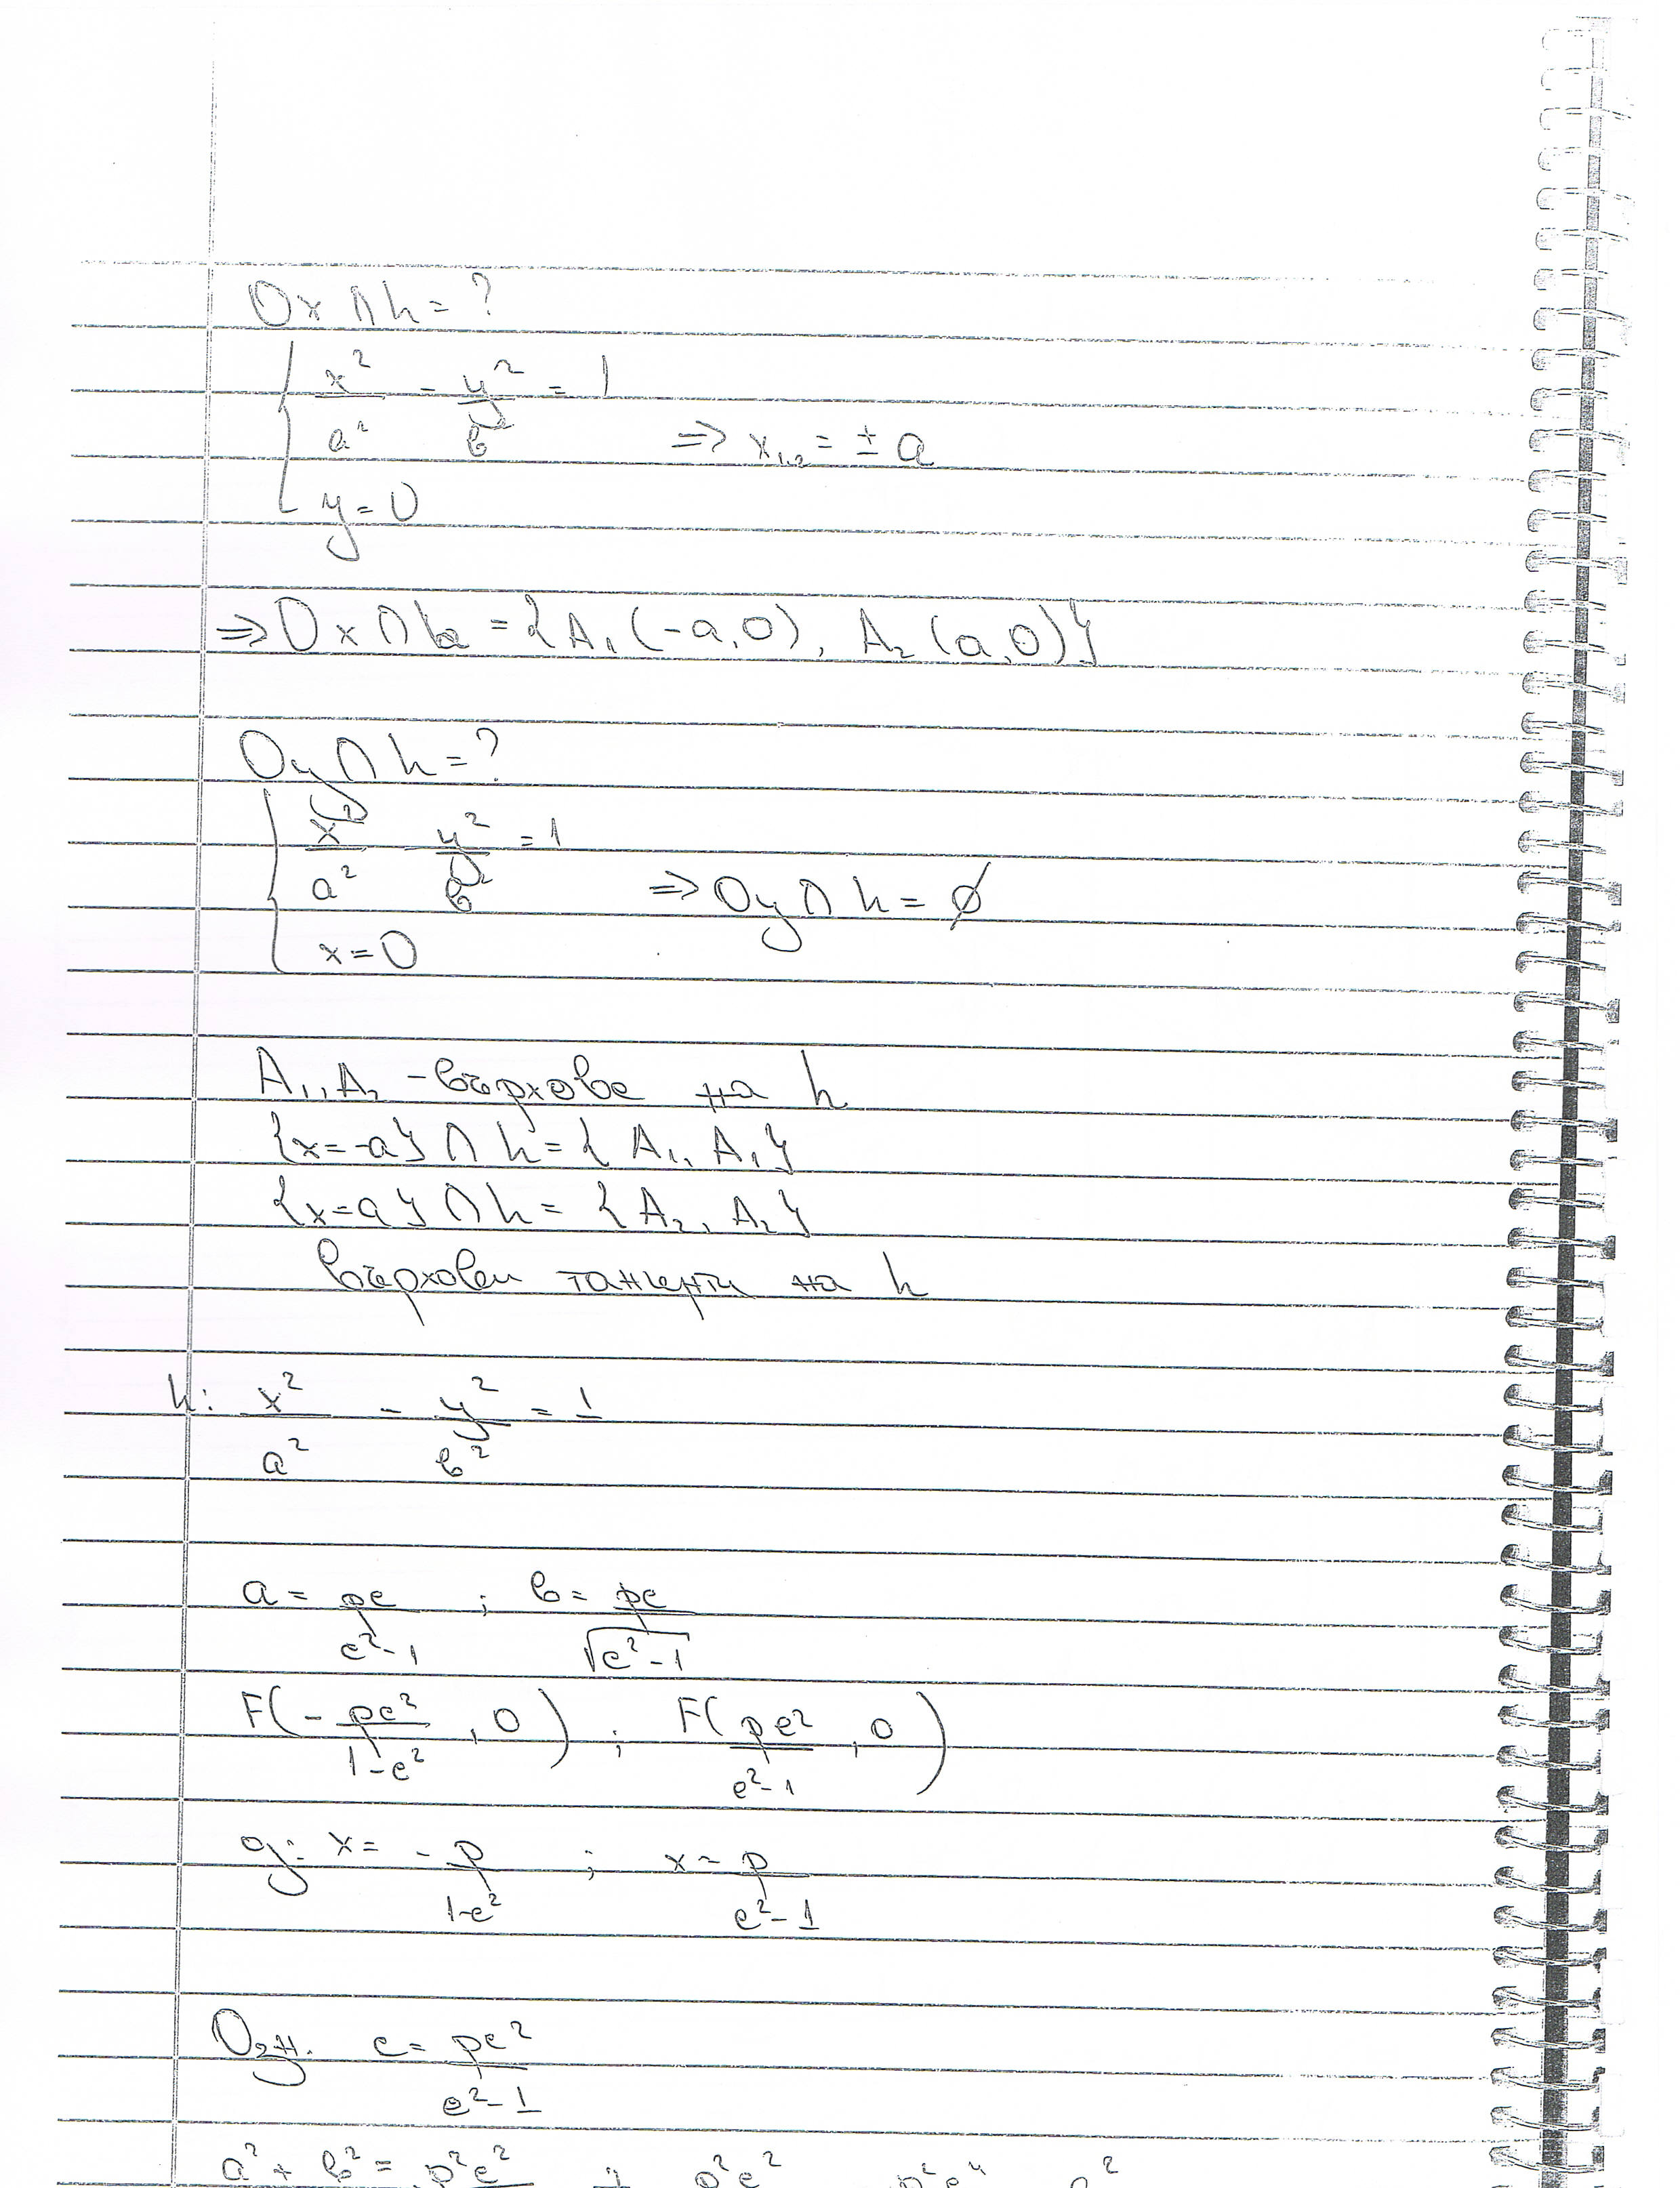 Ox ∩ h = ?
{ x²/a² - y²/b² = 1
y = 0 ⇒ x₁,₂ = ± a
⇒ Ox ∩ h = {A₁(-a,0), A₂(a,0)}
Oy ∩ h = ?
{ x²/a² - y²/b² = 1
x = 0 ⇒ Oy ∩ h = ∅
A₁, A₂ - върхове на h
{x=-a} ∩ h = {A₁, A₁}
{x=a} ∩ h = {A₂, A₂}
върхови тангенти на h
h: x²/a² - y²/b² = 1
a = pe/(e²-1) ; b = pe/√(e²-1)
F(- pe²/(1-e²), 0) ; F(pe²/(e²-1), 0)
g: x = - p/(1-e²) ; x = p/(e²-1)
Озн. c = pe²/(e²-1)
a² + b² = p²e² + p²e² p²e⁴ 2